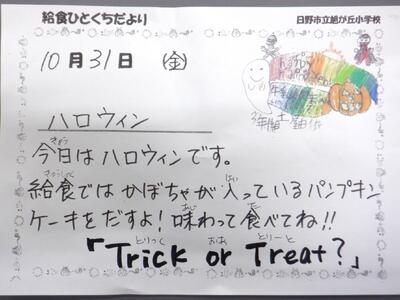 給食ひとくちだより
日野市立旭が丘小学校
10月31日 (金)
ハロウィン
今日はハロウィンです。
給食ではかぼちゃが入っているパンプキン
ケーキをだすよ！味わって食べてね!!
「Trick or Treat?」